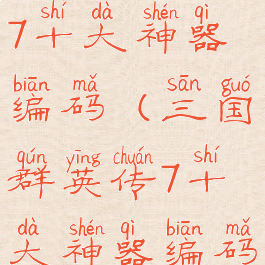 shí dà shén qì
7十大神器
biān mǎ sān guó
编码(三国
qún yīng chuán shí
群英传7十
dà shén qì biān mǎ
大神器编码